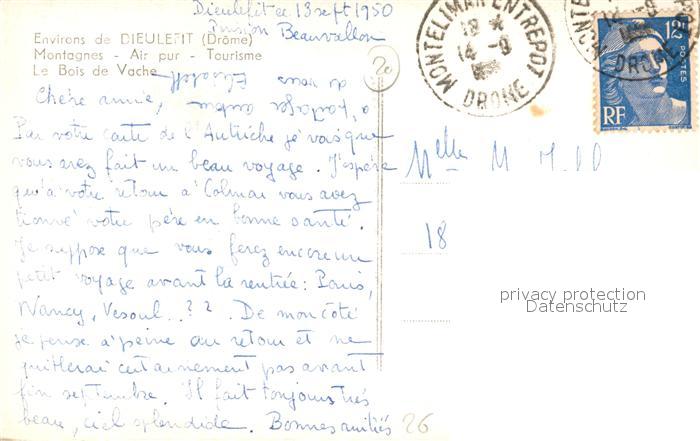 Dieulefit ce 13 sept 1950
Pension Beauvallon
Environs de DIEULEFIT (Drôme)
Montagnes - Air pur - Tourisme
Le Bois de Vache
Chère amie,
Par votre carte de l'Autriche je vois que
vous avez fait un beau voyage. J'espère
qu'à votre retour à Colmar vous avez
trouvé votre père en bonne santé.
Je suppose que vous ferez encore un
petit voyage avant la rentrée : Paris,
Nancy, Vesoul..?? De mon côté
je pense à peine au retour et ne
quitterai certainement pas avant
fin septembre. Il fait toujours très
beau, ciel splendide. Bonnes amitiés
à partager autour
de vous Elisabeth
20
MONTELIMAR ENTREPOT
18 *
14 - 9
DROME
MONTELIMAR
14 - 9
DROME
12F
POSTES
RF
Melle M
18
privacy protection
Datenschutz
26